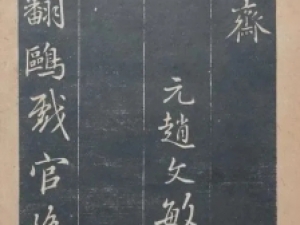 齋
元趙文敏
翻鷗戲官